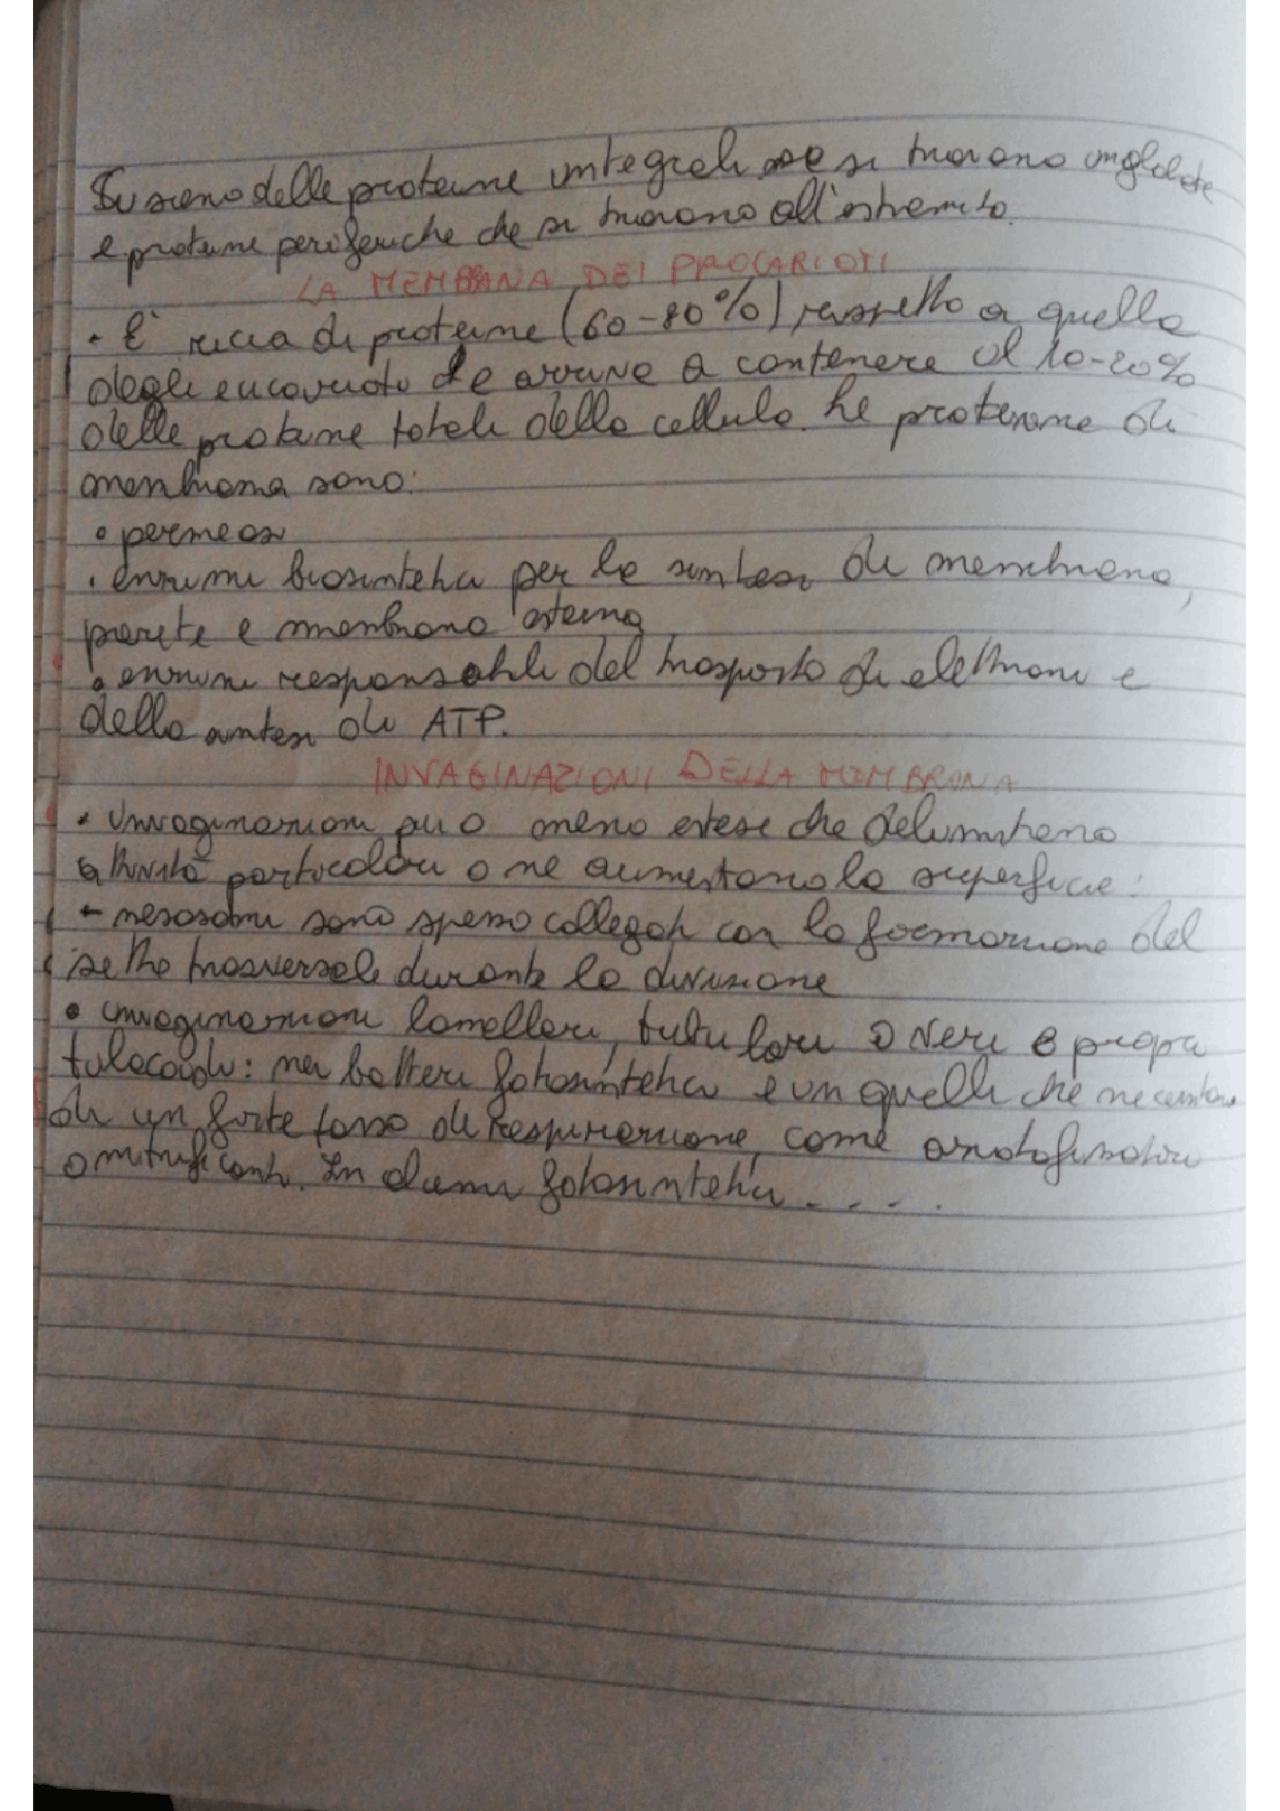 Si sono delle proteine integrali se si trovano inglobate
e proteine periferiche che si trovano all'estremità.
LA MEMBRANA DEI PROCARIOTI
• È ricca di proteine (60-80%) rispetto a quella
degli eucarioti e arriva a contenere il 10-20%
delle proteine totali della cellula. Le proteine di
membrana sono:
• permeasi
• enzimi biosintetici per la sintesi di membrana,
parete e membrana esterna
• enzimi responsabili del trasporto di elettroni e
della sintesi di ATP.
INVAGINAZIONI DELLA MEMBRANA
• invaginazioni più o meno estese che delimitano
attività particolari o ne aumentano la superficie:
- mesosomi sono spesso collegati con la formazione del
setto trasversale durante la divisione
• invaginazioni lamellari, tubulari o veri e propri
tilacoidi: nei batteri fotosintetici e in quelli che necessitano
di un forte tasso di respirazione, come azotofissatori
o nitrificanti. In alcuni fotosintetici . . . .